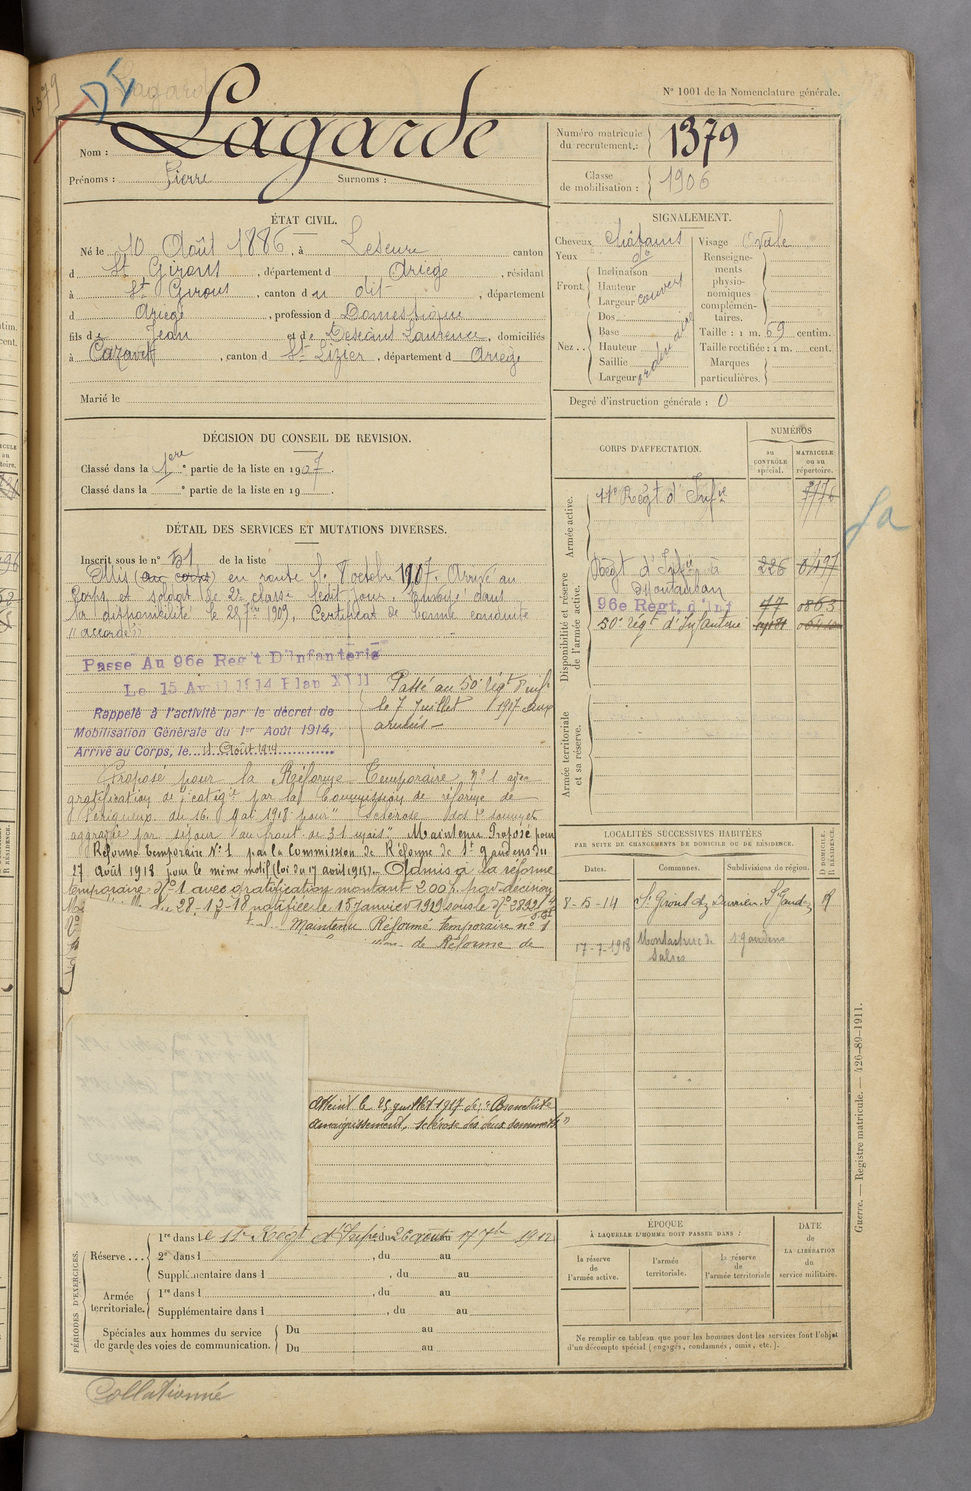 N° 1001 de la Nomenclature générale.
Lagarde
Nom :
Prénoms : Pierre Surnoms :
Numéro matricule du recrutement : 1379
Classe de mobilisation : 1906
ÉTAT CIVIL.
Né le 10 Août 1886, à Lescure canton
d St Girons, département d Ariège, résidant
à St Girons, canton d u dit, département
d Ariège, profession d Domestique
fils de Jean et de Descaud Laurence, domiciliés
à Cazavet, canton d St Lizier, département d Ariège
Marié le
SIGNALEMENT.
Cheveux châtains
Yeux do
Front. Inclinaison
Hauteur
Largeur couvert
Nez.. Dos
Base
Hauteur
Saillie
Largeur ordinaire
Visage Ovale
Renseignements physionomiques complémentaires.
Taille : 1 m. 69 centim.
Taille rectifiée : 1 m. cent.
Marques particulières.
Degré d'instruction générale : 0
DÉCISION DU CONSEIL DE REVISION.
Classé dans la 1ere partie de la liste en 1907.
Classé dans la e partie de la liste en 19
DÉTAIL DES SERVICES ET MUTATIONS DIVERSES.
Inscrit sous le n° 51 de la liste
Mis (au corps) en route le 8 octobre 1907. Arrivé au
Corps et soldat de 2e classe ledit jour. Envoyé dans
la disponibilité le 25 7bre 1909. Certificat de bonne conduite
"accordé"
Passé Au 96e Reg't D'infanterie
Le 15 Avril 1914 Plan XVII
Rappelé à l'activité par le décret de
Mobilisation Générale du 1er Août 1914,
Arrivé au Corps, le 11 Août 1914
Passé au 50e Régt d'inf
le 7 Juillet 1917 aux
armées
Proposé pour la Réforme Temporaire N° 1 avec
gratification de catégie par la Commission de réforme de
Périgueux du 16 Mai 1918 pour "Sclérose des 2 sommets
aggravée par séjour au front de 31 mois" Maintenu Proposé pour
Réforme temporaire N° 1 par la Commission de Réforme de St Gaudens du
17 août 1918 pour le même motif (loi du 17 août 1918). Admis à la réforme
temporaire N° 1 avec gratification montant 200 f. par décision
du 28-12-18 notifiée le 15 Janvier 1919 sous le N° 2892
Maintenu Réformé temporaire n° 1
de Réforme de
atteint le 25 juillet 1917 de: "Bronchite
amaigrissement, sclérose des deux sommets"
CORPS D'AFFECTATION.
NUMÉROS
AU CONTRÔLE spécial.
MATRICULE OU AU répertoire.
Armée active.
Disponibilité et réserve de l'armée active.
Régt d'Infie à Montauban 226
96e Régt, d'Inf 77 0863
50e régt d'Infanterie
Armée territoriale et sa réserve.
LOCALITÉS SUCCESSIVES HABITÉES
PAR SUITE DE CHANGEMENTS DE DOMICILE OU DE RÉSIDENCE.
Dates. Communes. Subdivisions de région. D DOMICILE. R RÉSIDENCE.
8-5-14 St Girons St Gaud R
17-7-1918 Montastruc de Salies St gaudens
PÉRIODES D'EXERCICES.
Réserve... 1re dans le Régt d'Infie, du 26 août au 17 7bre 1912
2e dans l , du au
Supplémentaire dans l , du au
Armée territoriale. 1re dans l , du au
Supplémentaire dans l , du au
Spéciales aux hommes du service de garde des voies de communication. Du au
Du au
ÉPOQUE
À LAQUELLE L'HOMME DOIT PASSER DANS :
la réserve de l'armée active.
l'armée territoriale.
la réserve de l'armée territoriale
DATE DE LA LIBÉRATION du service militaire.
Ne remplir ce tableau que pour les hommes dont les services font l'objet
d'un décompte spécial (engagés, condamnés, omis, etc.).
Guerre. — Registre matricule. — 426-89-1911.
Collationné